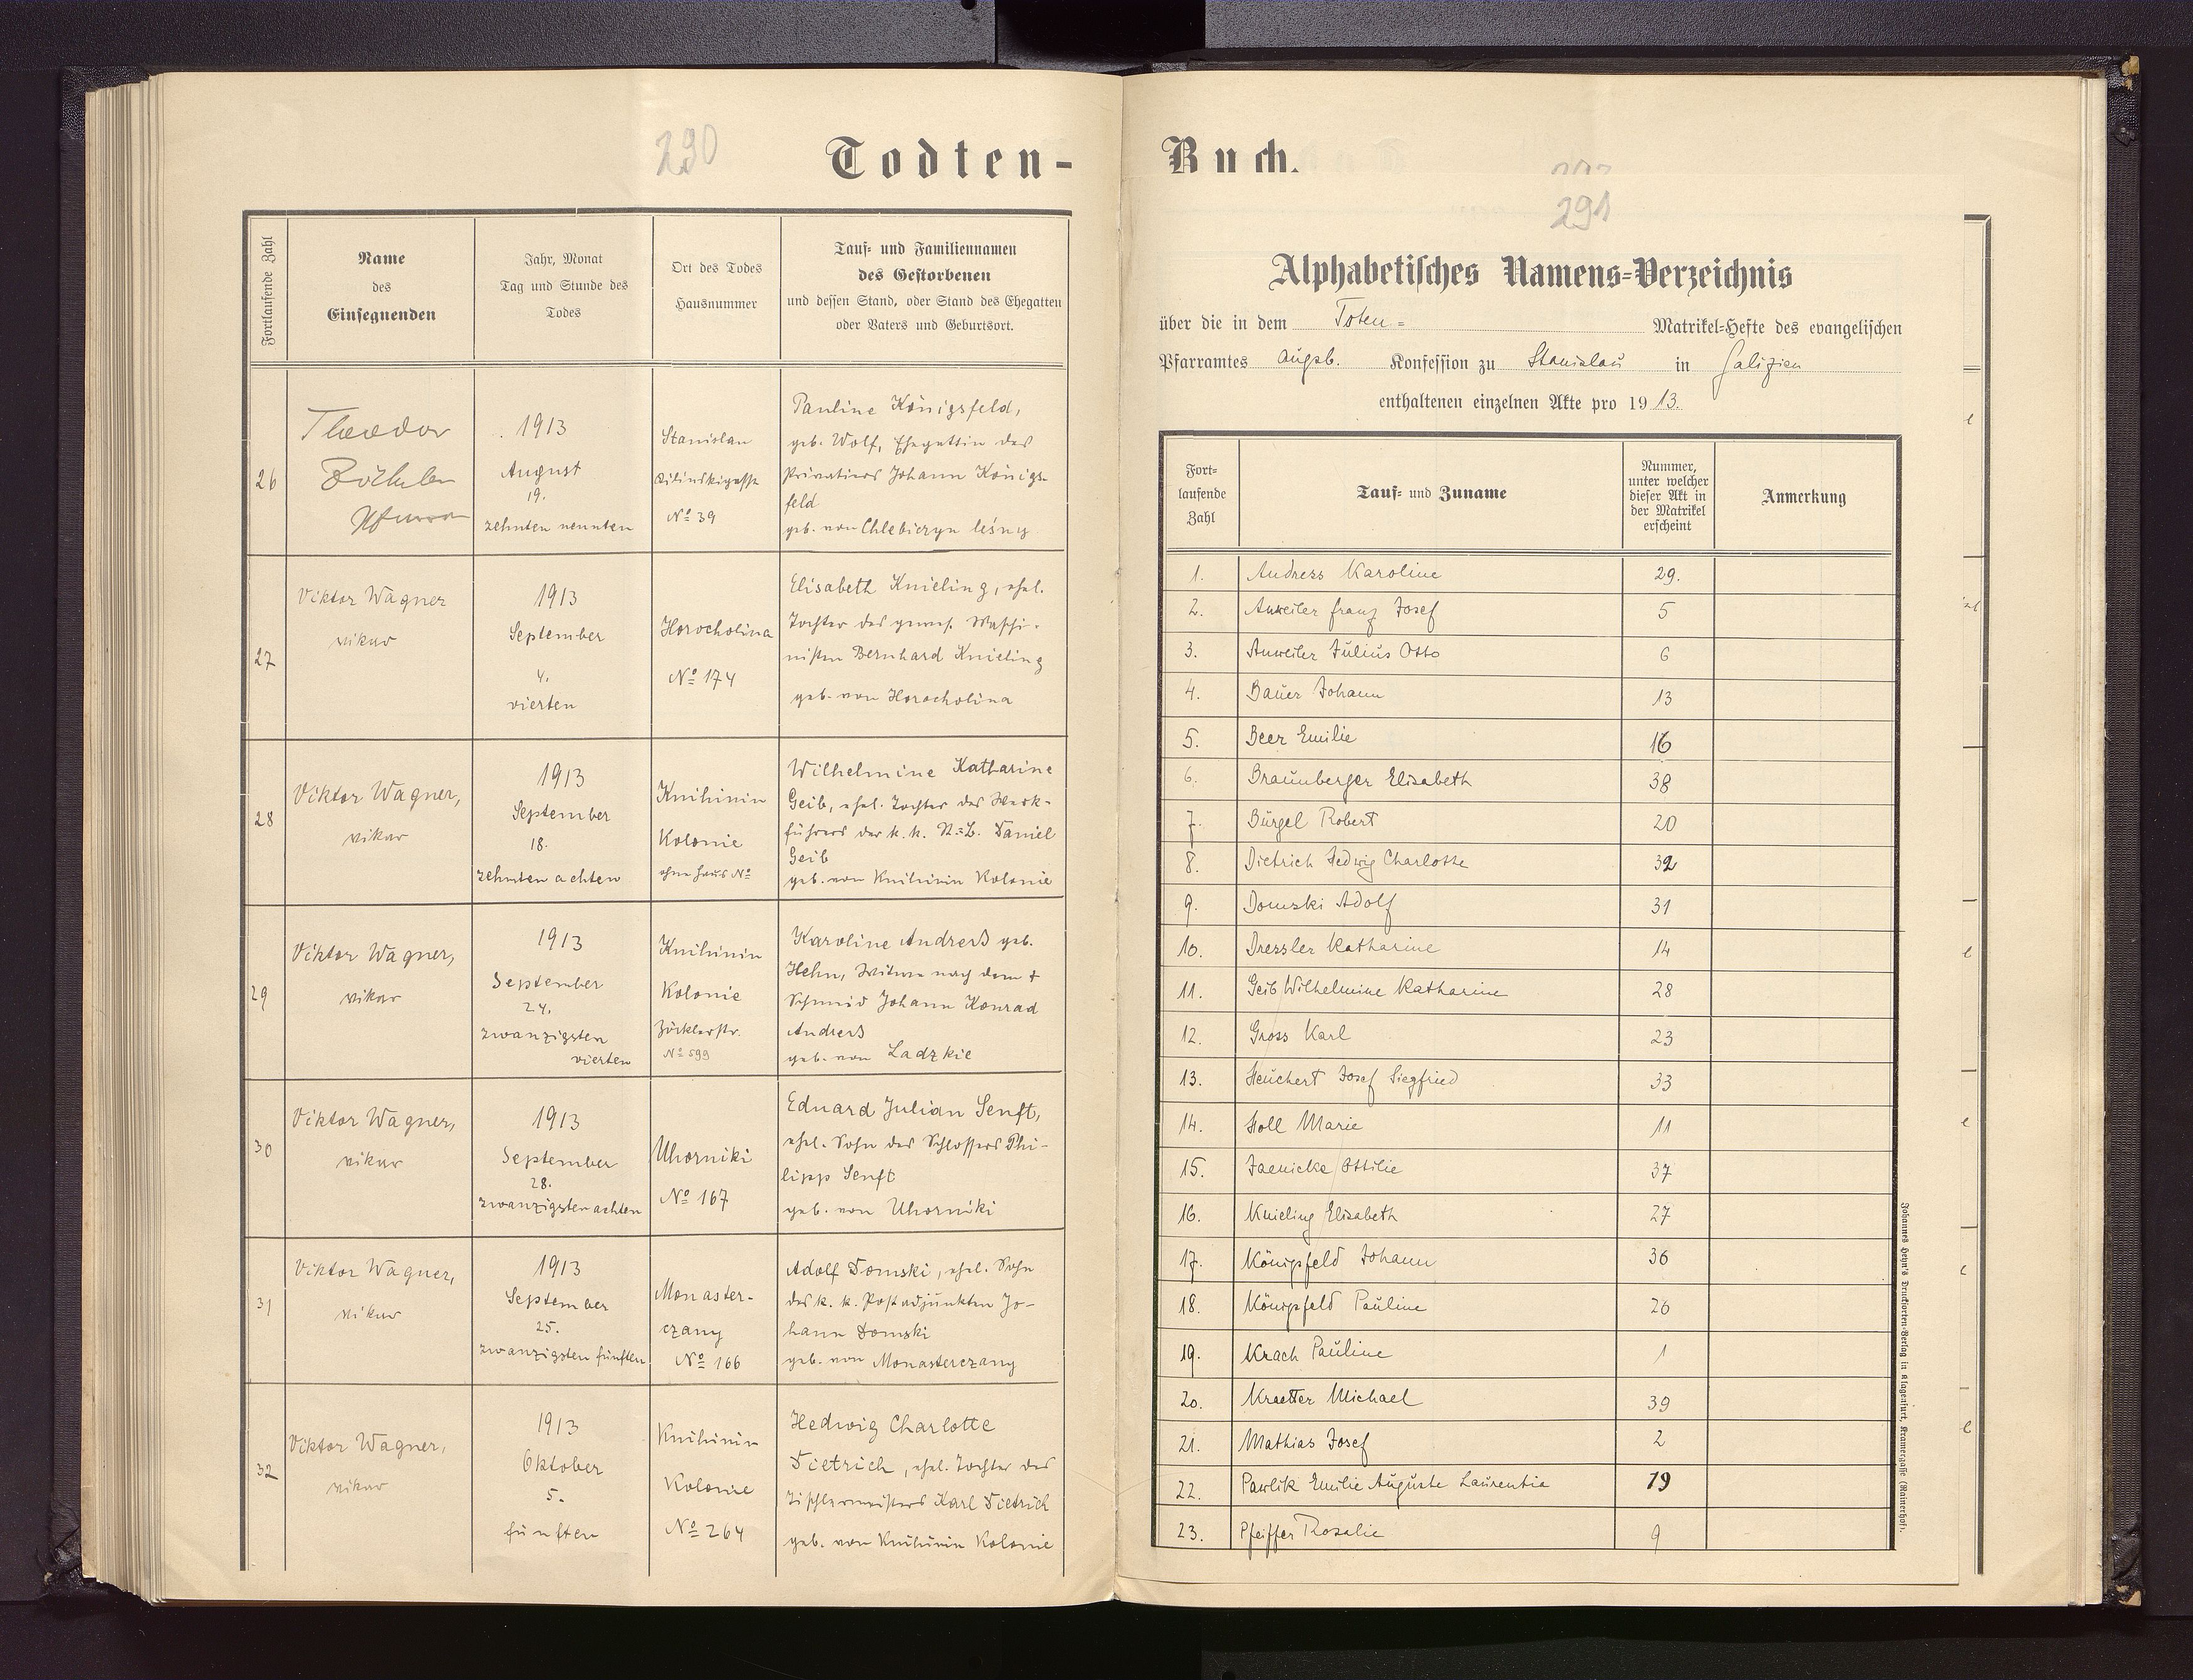 290
Todten-
Fortlaufende Zahl
Name
des
Einsegnenden
Jahr, Monat
Tag und Stunde des
Todes
Ort des Todes
Hausnummer
Tauf- und Familiennamen
des Gestorbenen
und dessen Stand, oder Stand des Ehegatten
oder Vaters und Geburtsort.
26
Theodor
Zöckler
Pfarrer
1913
August
19.
zehnten neunten
Stanislau
Kilinskigasse
Nº 39
Pauline Königsfeld,
geb. Wolf, Ehegattin des
Privatiers Johann Königs-
feld
geb. von Chlebiczyn leśny
27
Viktor Wagner
Vikar
1913
September
4.
vierten
Horocholina
Nº 174
Elisabeth Knieling, ehel.
Tochter des gewes. Maschi-
nisten Bernhard Knieling
geb. von Horocholina
28
Viktor Wagner,
Vikar
1913
September
18.
zehnten achten
Knihinin
Kolonie
ohne Haus Nº
Wilhelmine Katharine
Geib, ehel. Tochter des Werk-
führers der k. k. N=B. Daniel
Geib
geb. von Knihinin Kolonie
29
Viktor Wagner,
Vikar
1913
September
24.
zwanzigsten
vierten
Knihinin
Kolonie
Zöcklerstr.
Nº 599
Karoline Andress geb.
Hehn, Witwe nach dem †
Schmied Johann Konrad
Andress
geb. von Ladzkie
30
Viktor Wagner,
Vikar
1913
September
28.
zwanzigsten achten
Uhorniki
Nº 167
Eduard Julian Senft,
ehel. Sohn des Schlossers Phi-
lipp Senft
geb. von Uhorniki
31
Viktor Wagner,
Vikar
1913
September
25.
zwanzigsten fünften
Monaster-
czany
Nº 166
Adolf Domski, ehel. Sohn
des k. k. Postadjunkten Jo-
hann Domski
geb. von Monasterczany
32
Viktor Wagner,
Vikar
1913
Oktober
5.
fünften
Knihinin
Kolonie
Nº 264
Hedwig Charlotte
Dietrich, ehel. Tochter des
Tischlermeisters Karl Dietrich
geb. von Knihinin Kolonie
Buch.
291
Alphabetisches Namens-Verzeichnis
über die in dem Toten= Matrikel-Hefte des evangelischen
Pfarramtes Augsb. Konfession zu Stanislau in Galizien
enthaltenen einzelnen Akte pro 1913.
Fort-
laufende
Zahl
Tauf- und Zuname
Nummer,
unter welcher
dieser Akt in
der Matrikel
erscheint
Anmerkung
1. Andress Karoline 29.
2. Anweiler Franz Josef 5
3. Anweiler Julius Otto 6
4. Bauer Johann 13
5. Beer Emilie 16
6. Braunberger Elisabeth 38
7. Bürgel Robert 20
8. Dietrich Hedwig Charlotte 32
9. Domski Adolf 31
10. Dressler Katharine 14
11. Geib Wilhelmine Katharine 28
12. Gross Karl 23
13. Heuchert Josef Siegfried 33
14. Holl Marie 11
15. Jaenicke Ottilie 37
16. Knieling Elisabeth 27
17. Königsfeld Johann 36
18. Königsfeld Pauline 26
19. Krach Pauline 1
20. Kraetter Michael 39
21. Mathias Josef 2
22. Pawlik Emilie Auguste Laurentia 19
23. Pfeiffer Rosalie 9
Johannes Heyn's Drucksorten-Verlag in Klagenfurt, Kramergasse (Rainerhof).